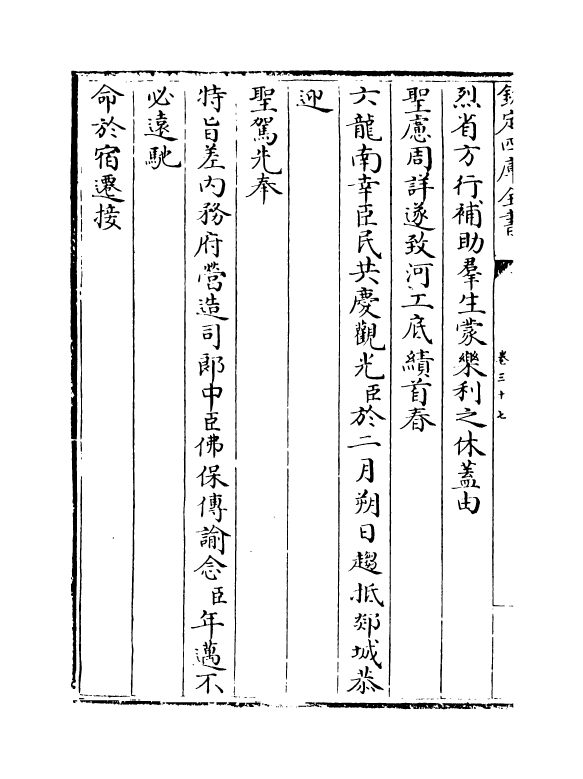 欽定四庫全書
卷三十七
烈省方行補助羣生蒙樂利之休蓋由
聖慮周詳遂致河工底績首春
六龍南幸臣民共慶觀光臣於二月朔日趨抵郯城恭
迎
聖駕先奉
特旨差内務府營造司郎中臣佛保傳諭念臣年邁不
必遠馳
命於宿遷接